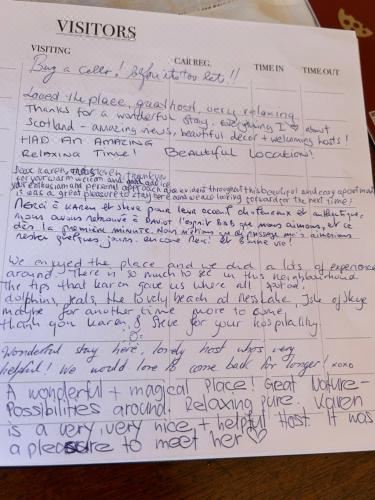 VISITORS
VISITING CAR REG. TIME IN TIME OUT
Buy a caller! before its too late!!
Loved the place, great host, very relaxing
Thanks for a wonderful stay. Everything I ♡ about
Scotland - amazing news, beautiful decor + welcoming hosts!
HAD AN AMAZING
RELAXING TIME! Beautiful Location!
Dear Karen, thank you
for your warm welcome and
your enthusiasm and personal approach are evident throughout this beautiful and cosy apartment
it was a great pleasure to stay here and we are looking forward for the next time!
Merci à Karen et Steve pour leur accueil chaleureux et authentique.
Nous avons retrouvé à l'esprit B&B que nous aimons, et ce
dès la première minute. Nous n'étions que de passage mais aimerions
rester quelques jours. encore merci et bonne vie!
We enjoyed the place and we did a lots of experience
around. There is so much to see in this neighbourhood
The tips that Karen gave us where all
dolphins, seals, the lovely beach at Isle of Skye
maybe for another time more to come,
thank you Karen & Steve for your hospitality.
Wonderful stay here, lovely host who's very
helpful! We would love to come back for longer! xoxo
A wonderful + magical place! Great Nature-
Possibilities around. Relaxing pure. Karen
is a very, very nice + helpful Host. It was
a pleasure to meet her ♡